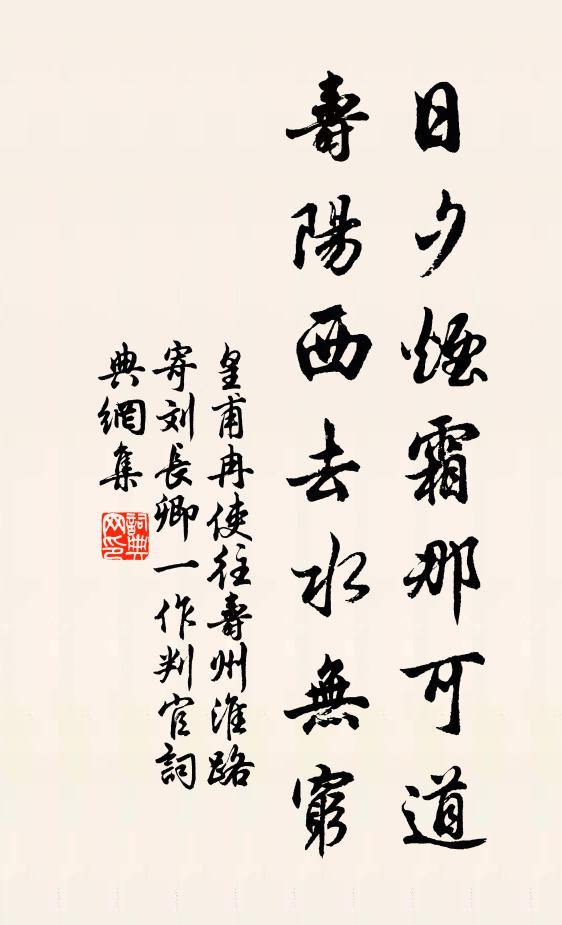 日夕煙霜那可道
壽陽西去水無窮
皇甫冉使往壽州淮路
寄刘長卿一作判官詞
典網集
詞典网印